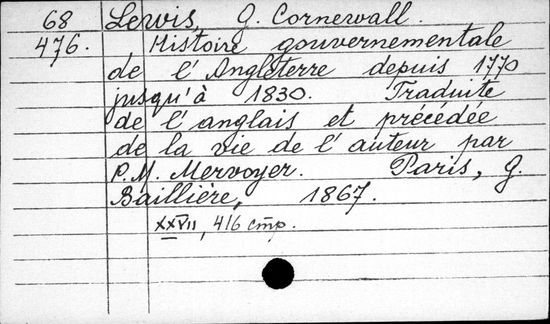 68 Lewis, G. Cornewall.
476. Histoire gouvernementale
de l'Angleterre depuis 1770
jusqu'à 1830. Traduite
de l'anglais et précédée
de la vie de l'auteur par
P. M. Mervoyer. Paris, G.
Baillière, 1867.
XXVII, 416 стр.